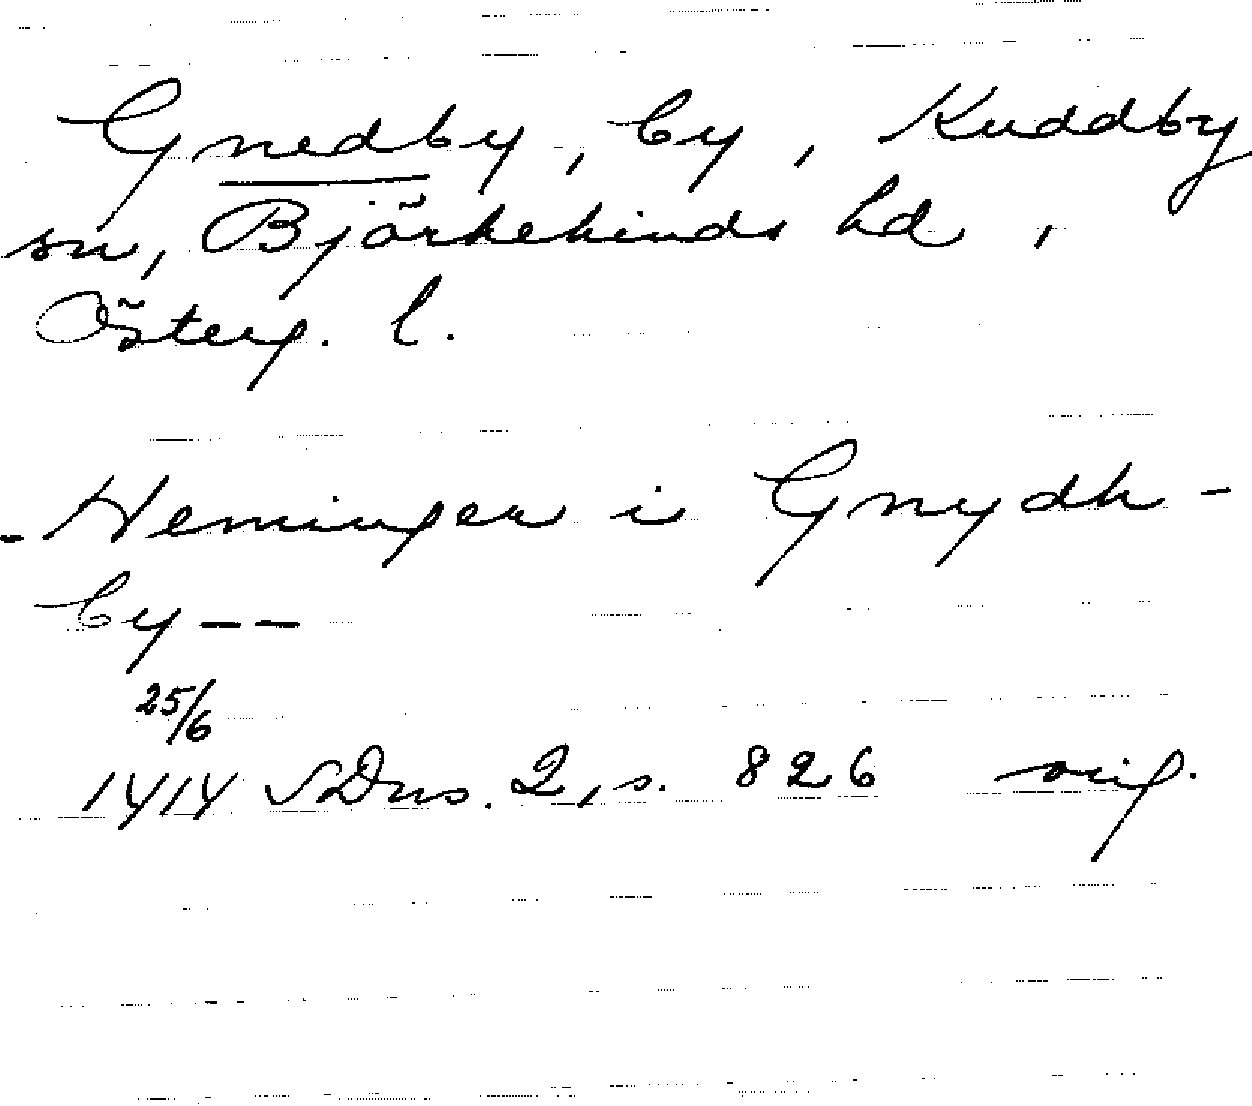 Gnedby, by, Kuddby
sn, Björkekinds hd,
Österg. l.
- Heminger i Gnydh-
by --
25/6
1414 SDns. 2, s. 826 orig.